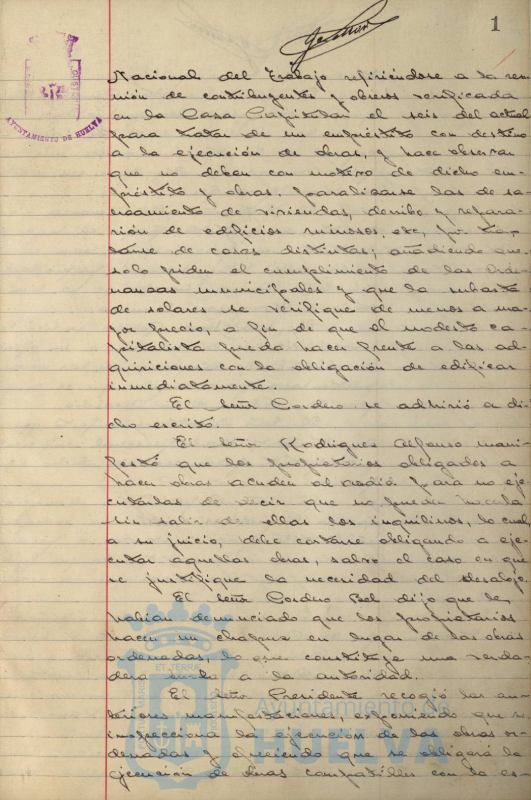 1
AYUNTAMIENTO DE HUELVA
Nacional del Trabajo refiriéndose a la reu
nión de contribuyentes y obreros verificada
en la Casa Capitular el seis del actual
para tratar de un empréstito con destino
a la ejecución de obras, y hace observar
que no deben con motivo de dicho em-
préstito y obras, paralizarse las de sa-
neamiento de viviendas, derribo y repara-
ción de edificios ruinosos, etc, por tra-
tarse de cosas distintas; añadiendo que
solo piden el cumplimiento de las Orde
nanzas municipales y que la subasta
de solares se verifique de menos a ma-
yor precio, a fin de que el modesto ca-
pitalista pueda hacer frente a las ad-
quisiciones con la obligación de edificar
inmediatamente.
El Señor Cordero se adhirió a di
cho escrito.
El Señor Rodriguez Alfonso mani-
festó que los propietarios obligados a
hacer obras acuden al para no eje-
cutarlas de decir que no pueden
sin salir de ellas los inquilinos, lo cual,
a su juicio, debe cortarse obligando a eje-
cutar aquellas obras, salvo el caso en que
se justifique la necesidad del desalojo.
El Señor Cordero Bel dijo que le
habian denunciado que los propietarios
hacen un chapuz en lugar de las obras
ordenadas, lo que constituye una verda-
dera burla a la autoridad.
El Señor Presidente recogió las an-
teriores manifestaciones, exponiendo que se
inspeccionará la ejecución de las obras or-
denadas y ofreciendo que se obligará la
ejecución de obras compatibles con la es-
Ayuntamiento de
HUELVA